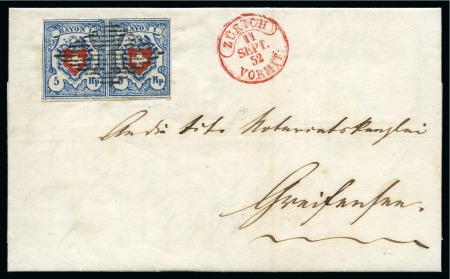 RAYON I. RAYON I.
5 Rp. 5 Rp.
ZÜRICH
11
SEPT.
52
VORMITT.
An die Tit. Notariatskanzlei
Greifensee.